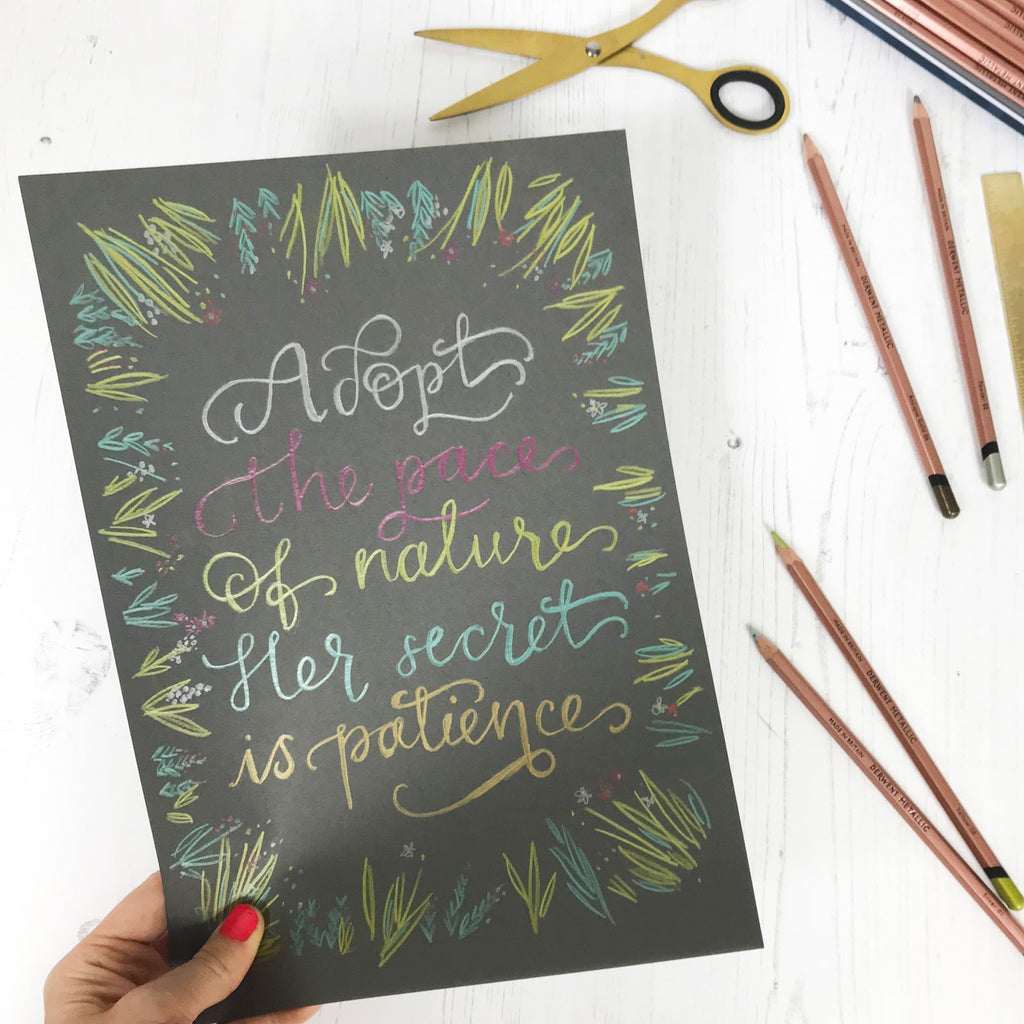 Adopt
the pace
Of nature
Her secret
is patience
MADE IN BRITAIN DERWENT METALLIC
DERWENT METALLIC
MADE IN BRITAIN DERWENT METALLIC
MADE IN BRITAIN DERWENT METALLIC